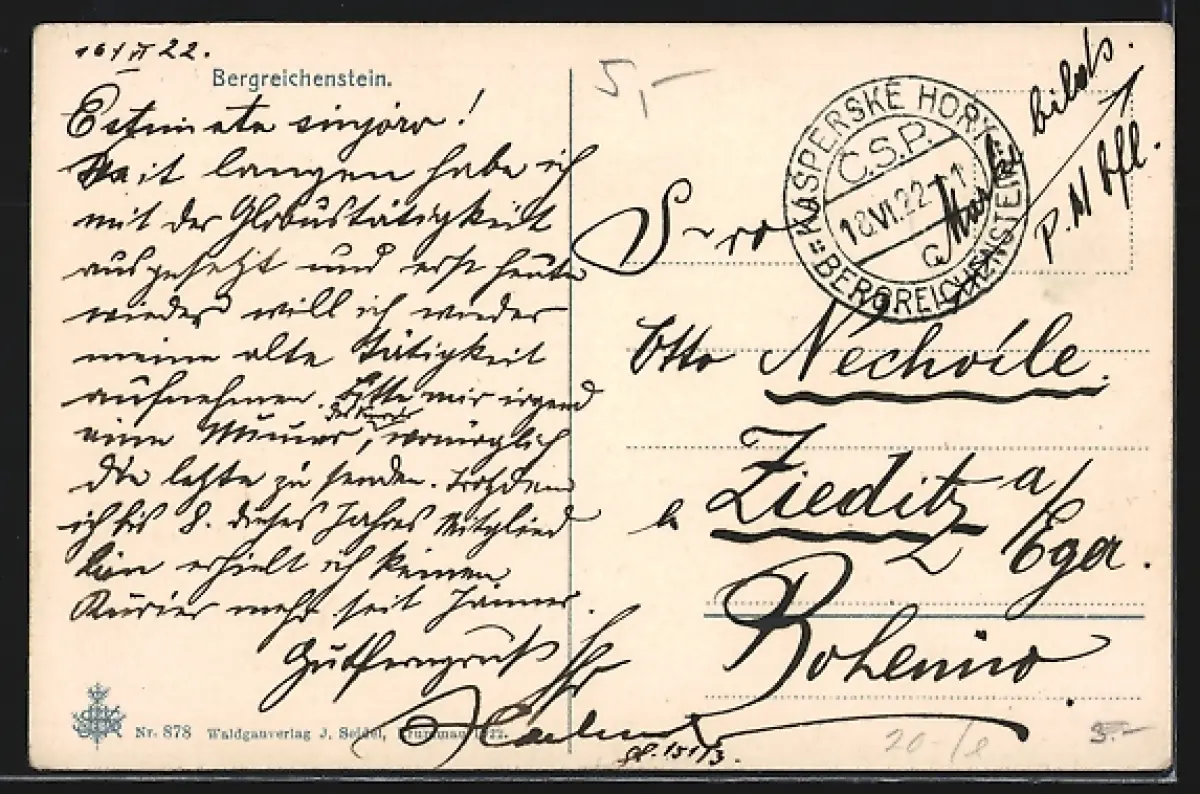 16/VI 22.
Bergreichenstein.
Estimata sinjoro!
Seit langem habe ich
mit der Globustätigkeit
ausgesetzt und erst heute
wieder will ich wieder
meine alte Tätigkeit
aufnehmen. Bitte mir irgend
des Kurier
eine Nummer, womöglich
die letzte zu senden. Trotzdem
ich bis 8. dieses Jahres Mitglied
bin erhielt ich keinen
Kurier mehr seit Jänner.
Gutferngruß Ihr
Nr. 878 Waldgauverlag J. Seidel, Krummau 1922.
gl. 151/3.
5,-
KAŠPERSKÉ HORY
Č.S.P.
18.VI.22
a
BERGREICHENSTEIN
Marke bilds.
P. N
S-ro
Otto Nechvíle.
Zieditz a/
Eger.
Bohemio
20-/
3.-